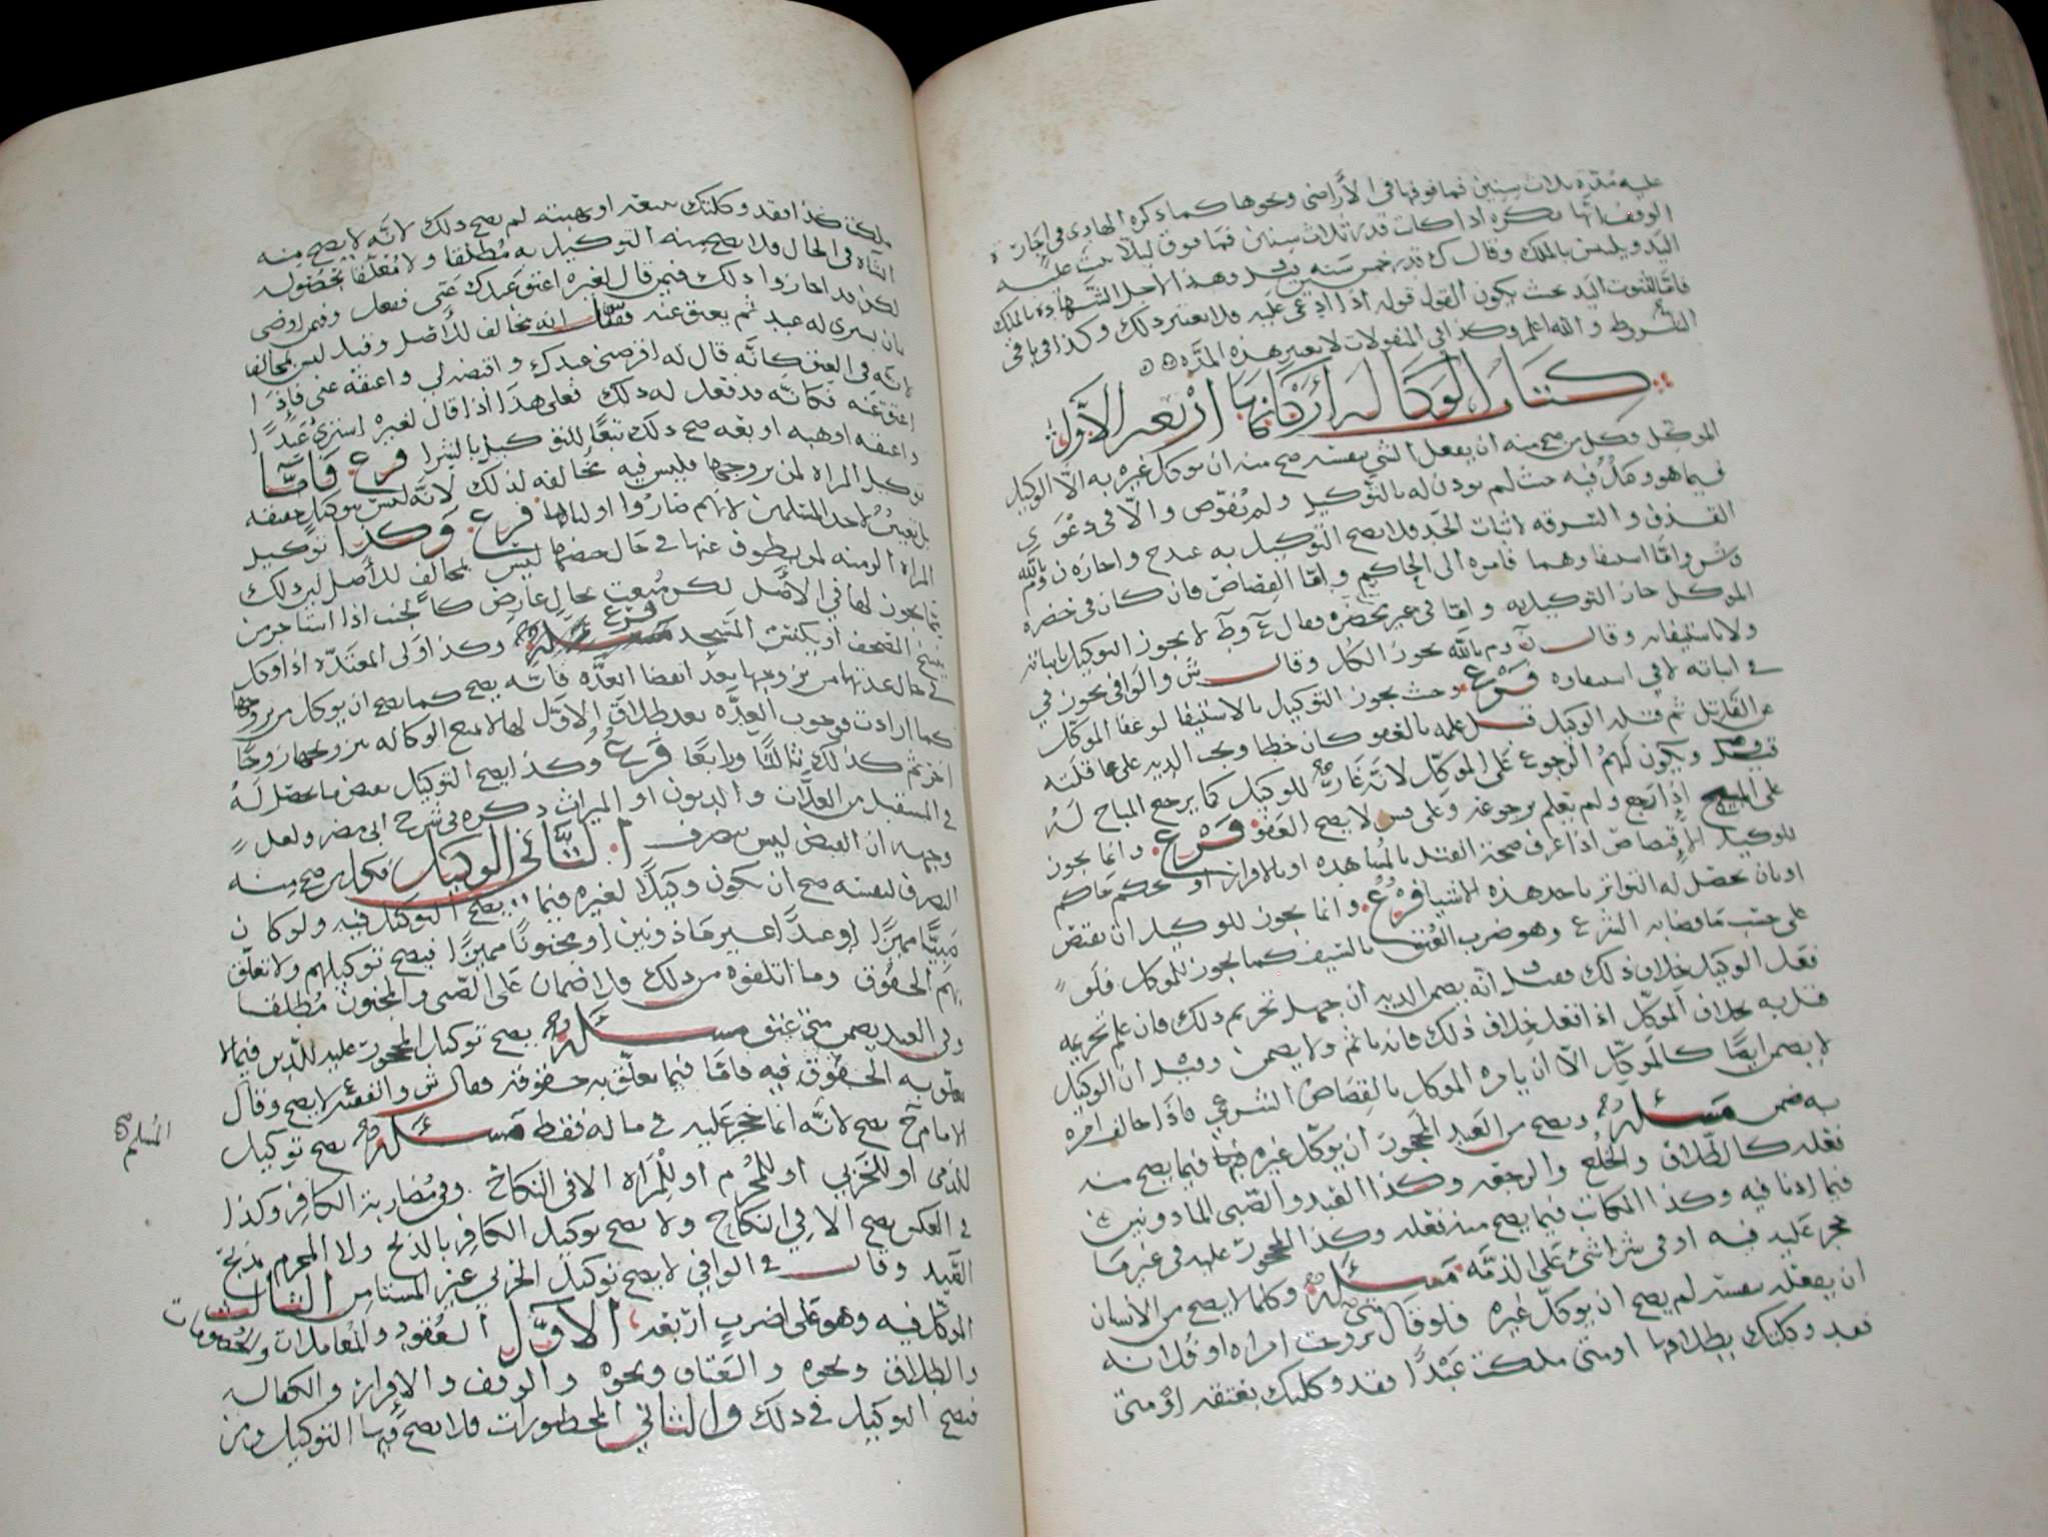 عليه مدة ثلاث سنين فما فوقها في الأراضي ونحوها كما ذكره الهادي في اجارة
الوقف انها تكره اذا كانت قدر ثلاث سنين فما فوق ليلا
اليد ويلبس بالملك وقال ك قدر خمس سنه وهذا لأجل الشهادة بالملك
فاما لثبوت اليد بحيث يكون القول قوله اذا ادعي عليه فلا يعتبر ذلك وكذا في باقي
الشروط والله اعلم وكذا في المنقولات لا يعتبر هذه المده
كتاب الوكاله أركانها اربعه الأول
الموكل وكل من صح منه ان يفعل الشي بنفسه صح منه ان يوكل غيره به الا الوكيل
فيما هو وكل فيه حيث لم يوذن له بالتوكيل ولم يفوض والا في دعوى
القذف والسرقه لاثبات الحد فلا يصح التوكيل به
واما استيفاوهما فامره الى الحاكم واما القصاص فان كان في حضرة
الموكل جاز التوكيل به واما في غير محضره فقال لا يجوز التوكيل باثباته
ولا باستيفائه وقال يجوز الكل وقال ش والوافي يجوز في
في اثباته لا في استيفاءه فرع وحيث يجوز التوكيل بالاستيفا لو عفا الموكل
عن القاتل ثم قتله الوكيل قبل علمه بالعفو كان خطا ويجب الديه على عاقلته
ويكون لهم الرجوع على الموكل لانه غار للوكيل كما يرجع المباح له
على المبيح اذا رجع ولم يعلم برجوعه وعلى لا يصح العفو فرع وانما يجوز
للوكيل الاقتصاص اذا عرف صحة القتل بالمشاهده او بالاقرار او بحكم حاكم
او بان يحصل له التواتر باحد هذه الاشيا فرع وانما يجوز للوكيل ان يقتص
على حسب ما قضا به الشرع وهو ضرب العنق بالسيف كما يجوز للموكل فلو
فعل الوكيل خلاف ذلك فقيل انه يضمن الديه ان جهل تحريم ذلك فان علم تحريمه
قتل به بخلاف الموكل اذا فعل خلاف ذلك فانه ياثم ولا يضمن وقيل ان الوكيل
لا يضمن ايضا كالموكل الا ان يامره الموكل بالقصاص الشرعي فاذا خالف امره
به ضمن مسئله ويصح من العبد المحجور ان يوكل غيره فيما يصح منه
فعله كالطلاق والخلع والرجعه وكذا العبد والصبي الماذونين
فيما اذنا فيه وكذا المكاتب فيما يصح منه فعله وكذا المحجور عليه في غير ما
حجر عليه فيه او في شراء شيء على الذمه مسئله وكلما لا يصح من الانسان
ان يفعله بنفسه لم يصح ان يوكل غيره فلو قال متى تزوجت امراه او فلانه
فقد وكلتك بطلاقها او متى ملكت عبدا فقد وكلتك بعتقه او متى
ملكت كذا فقد وكلتك ببيعه او بهبته لم يصح ذلك لانه لا يصح منه
في الحال فلا يصح منه التوكيل به مطلقا ولا معلقا بحصوله
لكن قد اجازوا ذلك فيمن قال لغيره اعتق عبدك عني ففعل وفيمن اوصى
بان يشرى له عبد ثم يعتق عنه فقال انه مخالف للأصل وقيل ليس بمخالف
لانه في العتق كانه قال له اقرضني عبدك واقبضه لي واعتقه عني فاذا
اعتق عنه فكانه قد فعل له ذلك فعلى هذا اذا قال لغيره اشتري عبدا
واعتقه اوهبه او بعه صح ذلك تبعا للتوكيل بالشرا فرع فاما
توكيل المراة لمن يزوجها فليس فيه مخالفه لذلك لانه ليس بتوكيل حقيقه
بل تعيين لاحد المسلمين لانهم صاروا اولياها فرع وكذا توكيل
المراه لمن يطوف عنها في حال حيضها ليس بمخالف للأصل لان ذلك
مما يجوز لها في الأصل لكن منعت بحال عارض كالجنب اذا استاجر من
ينسخ المصحف او يكنس المسجد فرع وكذا ولى المعتدة اذا وكل
في حال عدتها من يزوجها بعد انقضا العدة فانه يصح كما يصح ان يوكل من يزوجها
كما ارادت فوجوب العدة بعد طلاق الاول لها لا يمنع الوكاله من يزوجها زوجا
اخر ثم كذلك ثالثا ورابعا فرع وكذا يصح التوكيل بقبض ما يحصل له
في المستقبل من الغلات والديون او الميراث ذكره في شرح ابي مضر ولعل
وجهه ان القبض ليس بتصرف الثاني الوكيل فكل من صح منه
التصرف لنفسه صح ان يكون وكيلا لغيره فيما يصح التوكيل فيه ولو كان
صبيا مميزا او عبدا غير ماذونين او مجنونا مميزا فيصح توكيلهم ولا تعلق
بهم الحقوق وما اتلفوه من ذلك فلا ضمان على الصبي والمجنون مطلقا
وفي العبد يضمن متى عتق مسئله يصح توكيل المحجور عليه للدين فيما لا
تعلق به الحقوق فيه فاما فيما تعلق به حقوقه فقال ش والفقيه لا يصح وقال
الامام ح يصح لانه انما حجر عليه في ماله فقط مسئله يصح توكيل
المسلم
للذمي او للحربي او للمحرم او للمراه الا في النكاح وفي مضاربة الكافر وكذا
في العكس يصح الا في النكاح ولا يصح توكيل الكافر بالذبح ولا المحرم بذبح
الصيد وقال في الوافي لا يصح توكيل الحربي غير المستامن الثالث
الموكل فيه وهو على اضرب اربعه الاول العقود والمعاملات والخصومات
والطلاق ونحوه والعتاق ونحوه والوقف والاقرار والكفاله
فيصح التوكيل في ذلك والثاني المحظورات فلا يصح فيها التوكيل ومن